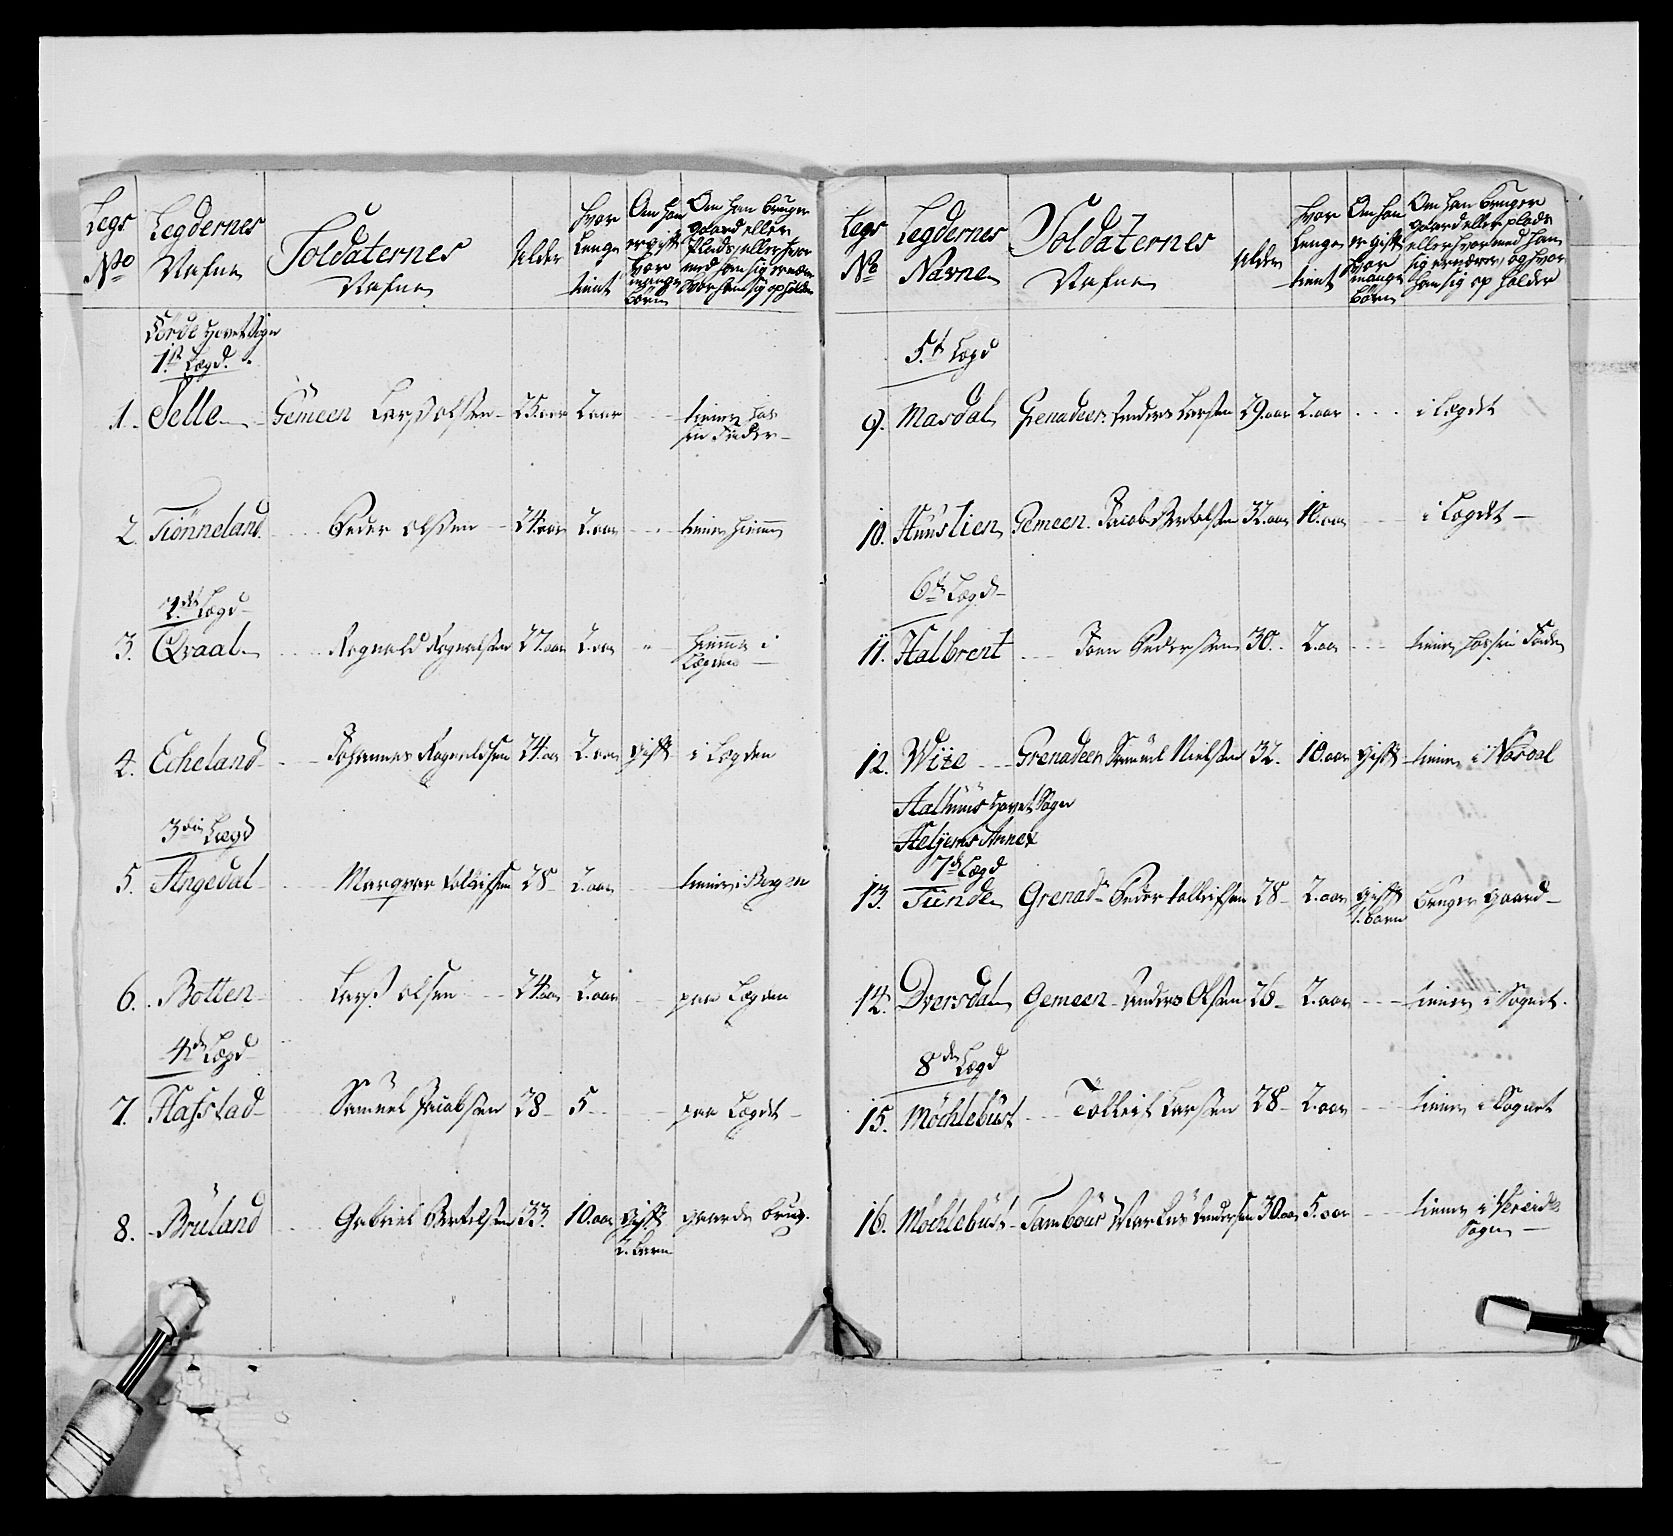 Legs No | Legdernes Nafne | Soldaternes Nafne | Alder | hvor Lenge tient | Om han er gift hvor mange børn | Om han bruger gaard eller Plads, eller hvor med han sig ernærer hvor han sig opholder
Förde Hovet Sogn
1te Lægd.
1. | Selle | Gemeen Lars Olsen | 25. aar | 2 aar | | tiener hos sin Fader
2. | Tiönneland | Peder Olsen | 24. aar | 2. aar | | tiener hiemme
2den Lægd
3. | Qvaal | Rognald Rognalsen | 27. aar | 2. aar | | hiemme i Lægden
4. | Echeland | Johannes Rognaldsen | 24. aar | 2. aar | gift | i Lægden
3die Lægd
5. | Angedal | Margvar Tolleifsen | 28 | 2. aar | | tiener i Bergen
6. | Botten | Lars Olsen | 24. aar | 2. aar | | paa Lægden
4de Lægd
7. | Hafstad | Samuel Jacobsen | 28 | 5 | | paa Lægdet
8. | Bruland | Gabriel Bertelsen | 33. | 10. aar | gift 2. barn | gaards brug.
Legs No | Legdernes Navne | Soldaternes Nafne | Alder | hvor Lenge tient | Om han er gift hvor mange børn | Om han bruger gaard eller plads eller hvor med han sig ernærer, og hvor han sig op holder
5te Lægd
9. | Masdal | Grenadeer. Anders Larsen | 29. aar | 2. aar | | i Lægdet
10. | Hunslien | Gemeen. Jacob | 32. aar | 10. aar | | i Lægdet
6te Lægd
11. | Halbrent | Joen Pedersen | 30. | 2. aar | | tiener hos sin Fader
12. | Wiie | Grenadeer Samuel Nielsen | 32. | 10. aar | gift | tiener i
Aalhuus Hovet Sogn
Heljems Annex
7de Lægd
13. | Tunde | Grenadr Peder Tolleifsen | 28 | 2. aar | gift 1. barn | bruger gaard
14. | Dversdal | Gemeen Anders Olsen | 26 | 2. aar | | tiener i Sognet.
8de Lægd
15. | Möchlebust | Tolleif Larsen | 28 | 2. aar | | tiener i Sognet
16. | Möchlebust | Tambour Marcus Andersen | 30. aar | 5. aar | | tiener i Sogn